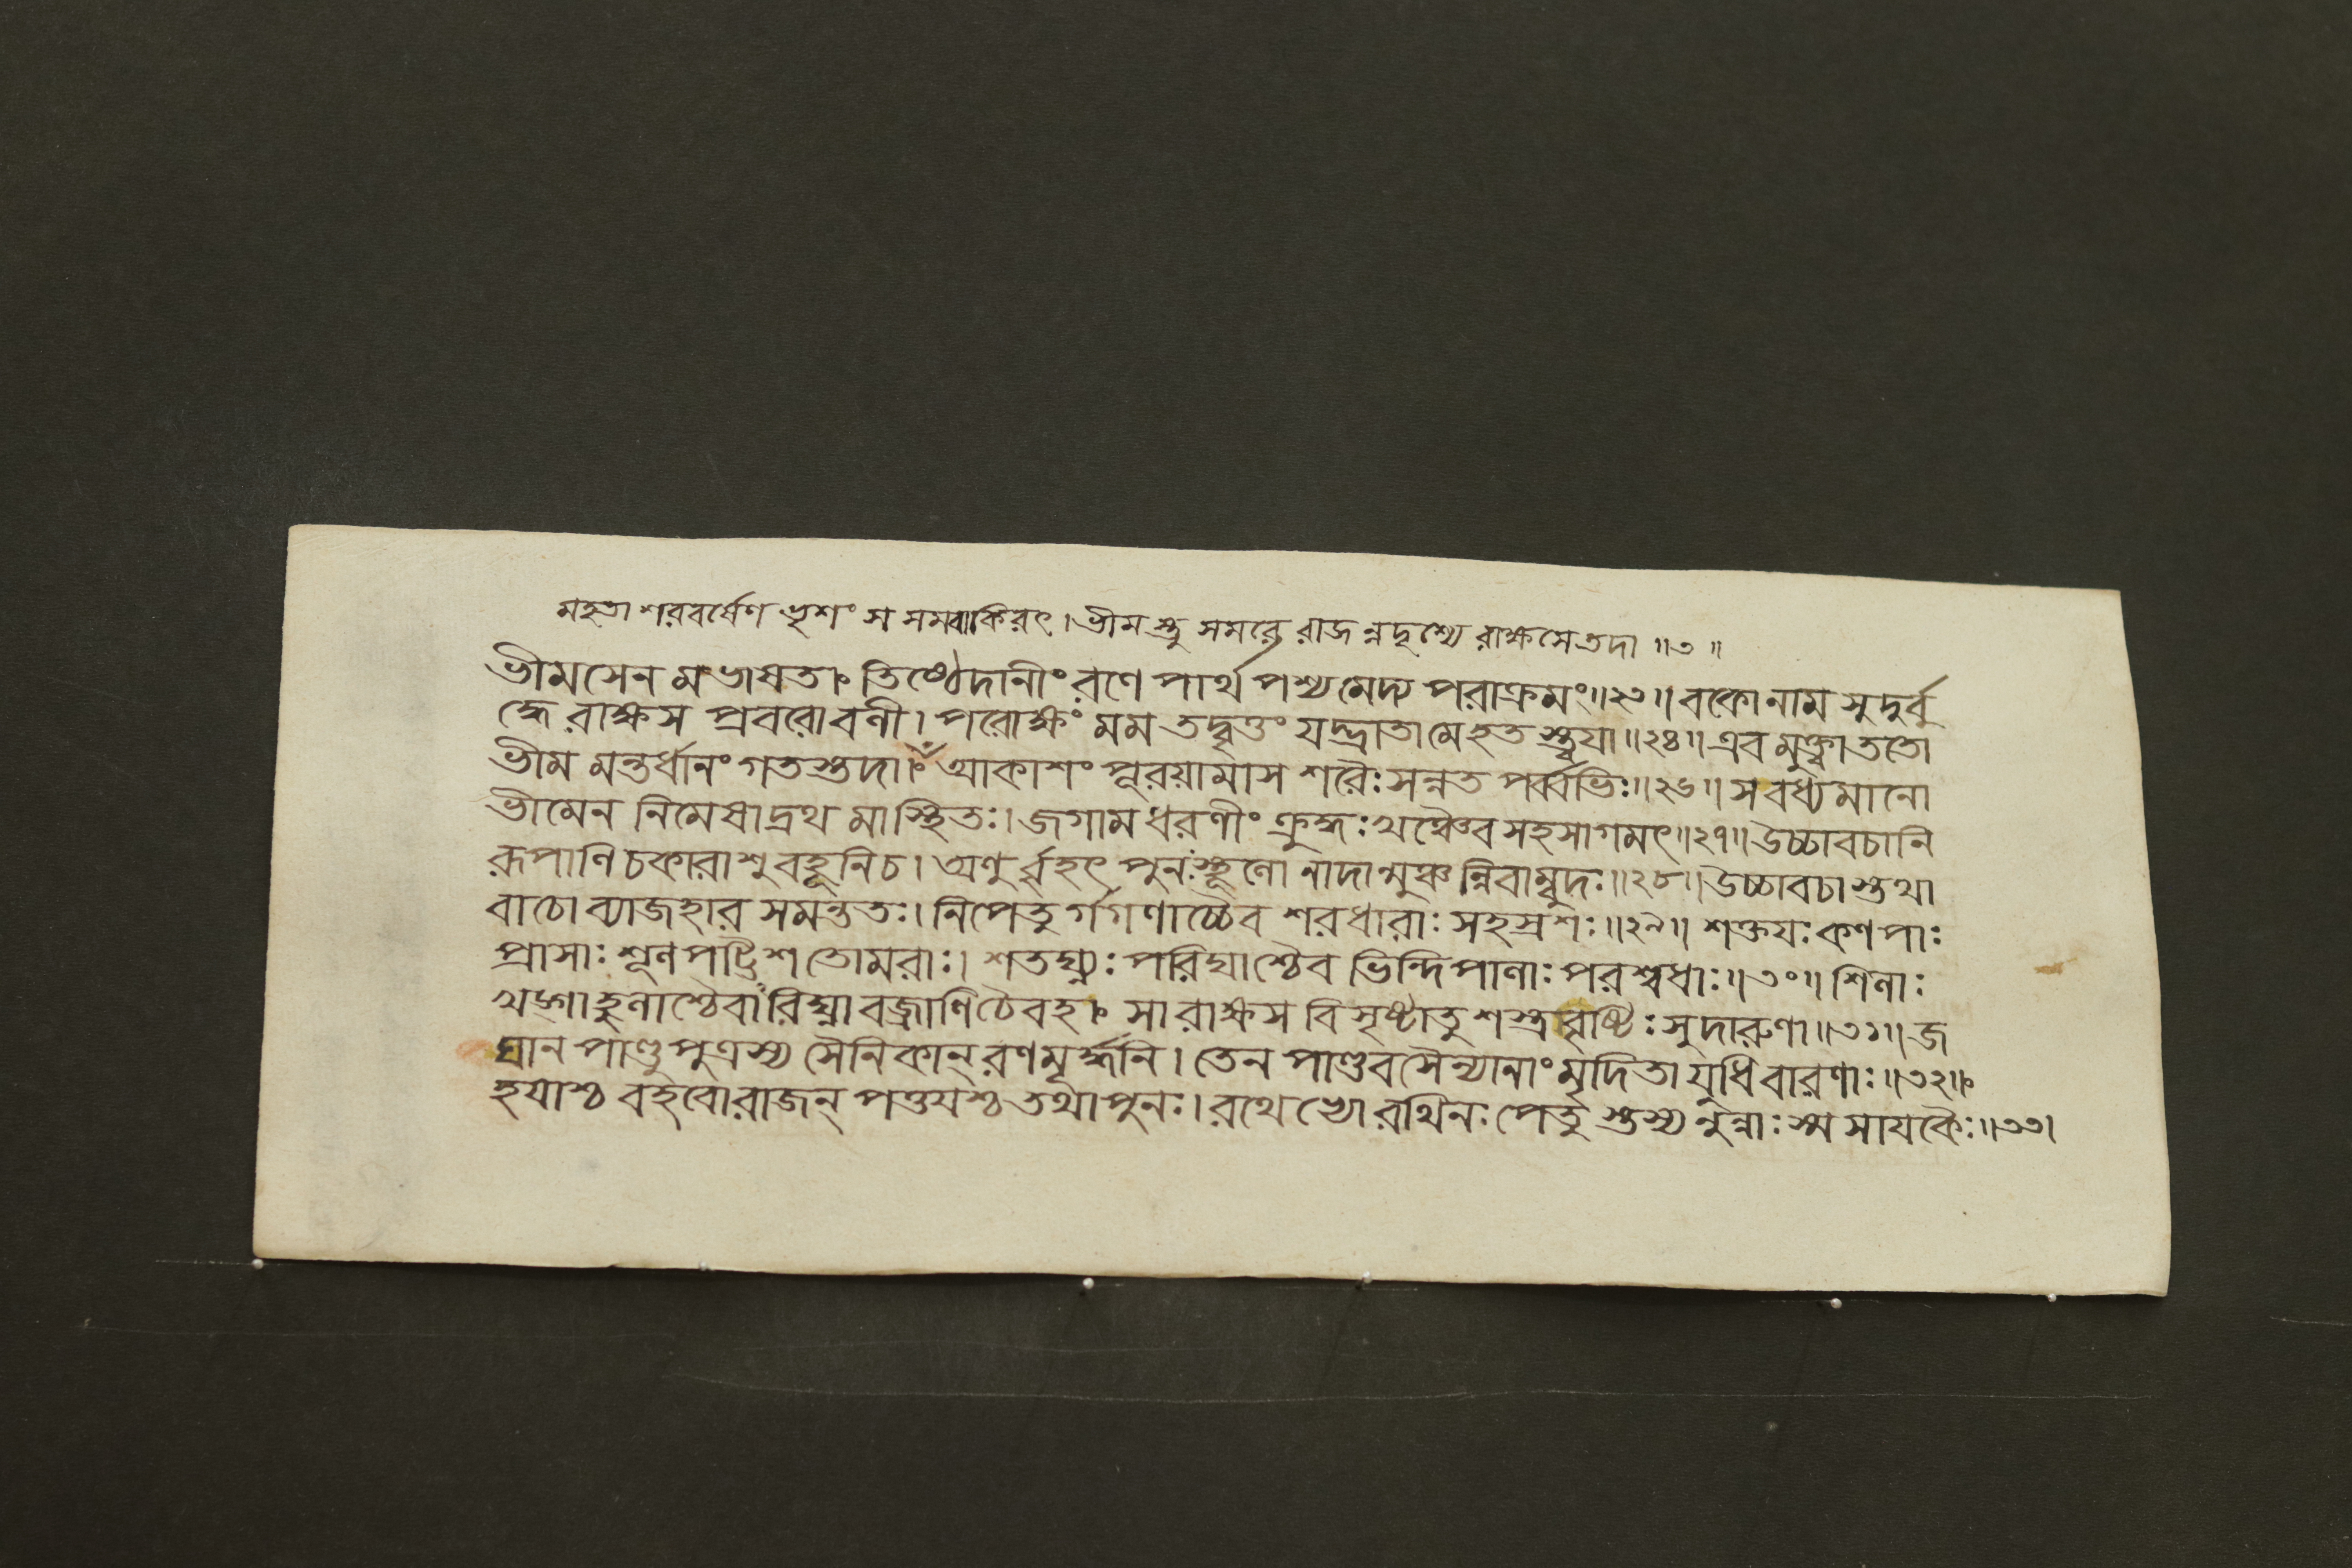 মহতা শরবর্ষেণ ভৃশং স সমবাকিরৎ । ভীমস্তু সমরে রাজন্নদৃশ্যে রাক্ষসে তদা ॥৩॥
ভীমসেন মভাষত। তিষ্ঠেদানীং রণে পার্থ পশ্য মেদ্য পরাক্রমং॥২৩॥ বকোনাম সুদুর্বু
দ্ধে রাক্ষস প্রবরোবলী। পরোক্ষং মম তদ্বৃত্তং যদ্ভ্রাতা মে হত স্ত্বয়া॥২৪॥ এব মুক্ত্বা ততো
ভীম মন্তর্ধানং গতস্তদা। আকাশং পূরয়ামাস শরৈঃ সন্নত পর্ব্বভিঃ॥২৬॥ স বধ্যমানো
ভীমেন নিমেষাদ্রথ মাস্থিতঃ। জগাম ধরণীং ক্রুদ্ধঃ খঞ্চৈব সহসাগমৎ॥২৭॥ উচ্চাবচানি
রূপাণি চকারাশু বহূনি চ। অণুর্ব্বৃহৎ পুনঃস্থূলো নাদান্মুঞ্চন্নিবাম্বুদঃ॥২৮॥ উচ্চাবচাস্তথা
বাচো ব্যাজহার সমন্ততঃ। নিপেতু র্গগণাচ্চৈব শরধারাঃ সহস্রশঃ॥২৯॥ শক্তয়ঃ কণপাঃ
প্রাসাঃ শূল পট্টিশ তোমরাঃ। শতঘ্ন্যঃ পরিঘাশ্চৈব ভিন্দিপালাঃ পরশ্বধাঃ॥৩০॥ শিলাঃ
খড়্গা হুলাশ্চৈবারিঘ্না বজ্রাণি চৈবহ। সা রাক্ষস বিসৃষ্টা তু শস্ত্র বৃষ্টিঃ সুদারুণা॥৩১॥ জ
ঘান পাণ্ডুপুত্রস্য সৈনিকান্ রণমূর্দ্ধনি। তেন পাণ্ডবসৈন্যানাং মৃদিতা যুধি বারণাঃ॥৩২॥
হয়াশ্চ বহবো রাজন্ পত্তয়শ্চ তথা পুনঃ। রথেভ্যো রথিনঃ পেতু স্তস্য নুন্নাঃ স্ম সায়কৈঃ॥৩৩।